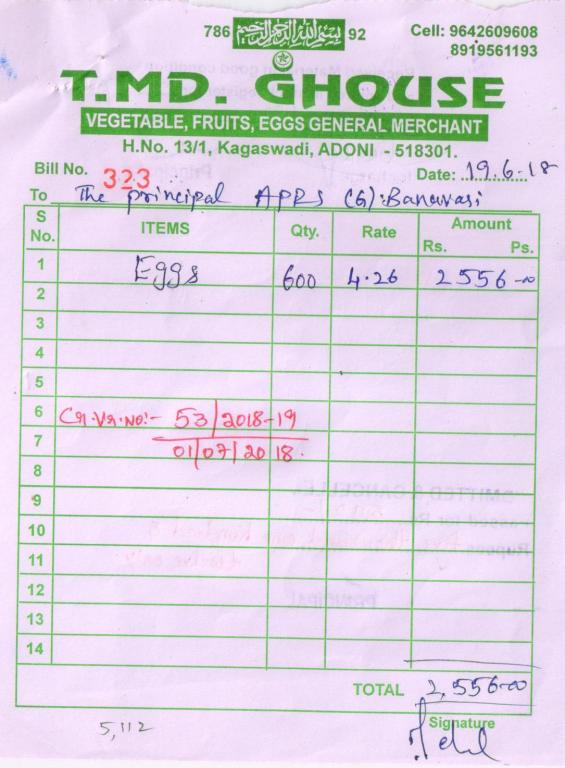 786 بسم الله الرحمن الرحيم 92
Cell: 9642609608
8919561193
T.MD. GHOUSE
VEGETABLE, FRUITS, EGGS GENERAL MERCHANT
H.No. 13/1, Kagaswadi, ADONI - 518301.
Bill No. 323 Date: 19.6-18
To The principal APRS (G): Banavasi
S No. ITEMS Qty. Rate Amount Rs. Ps.
1 Eggs 600 4.26 2556-00
2
3
4
5
6 Cr.Vr.No:- 53/2018-19
7 01/07/2018.
8
9
10
11
12
13
14
TOTAL 2,556-00
5,112
Signature